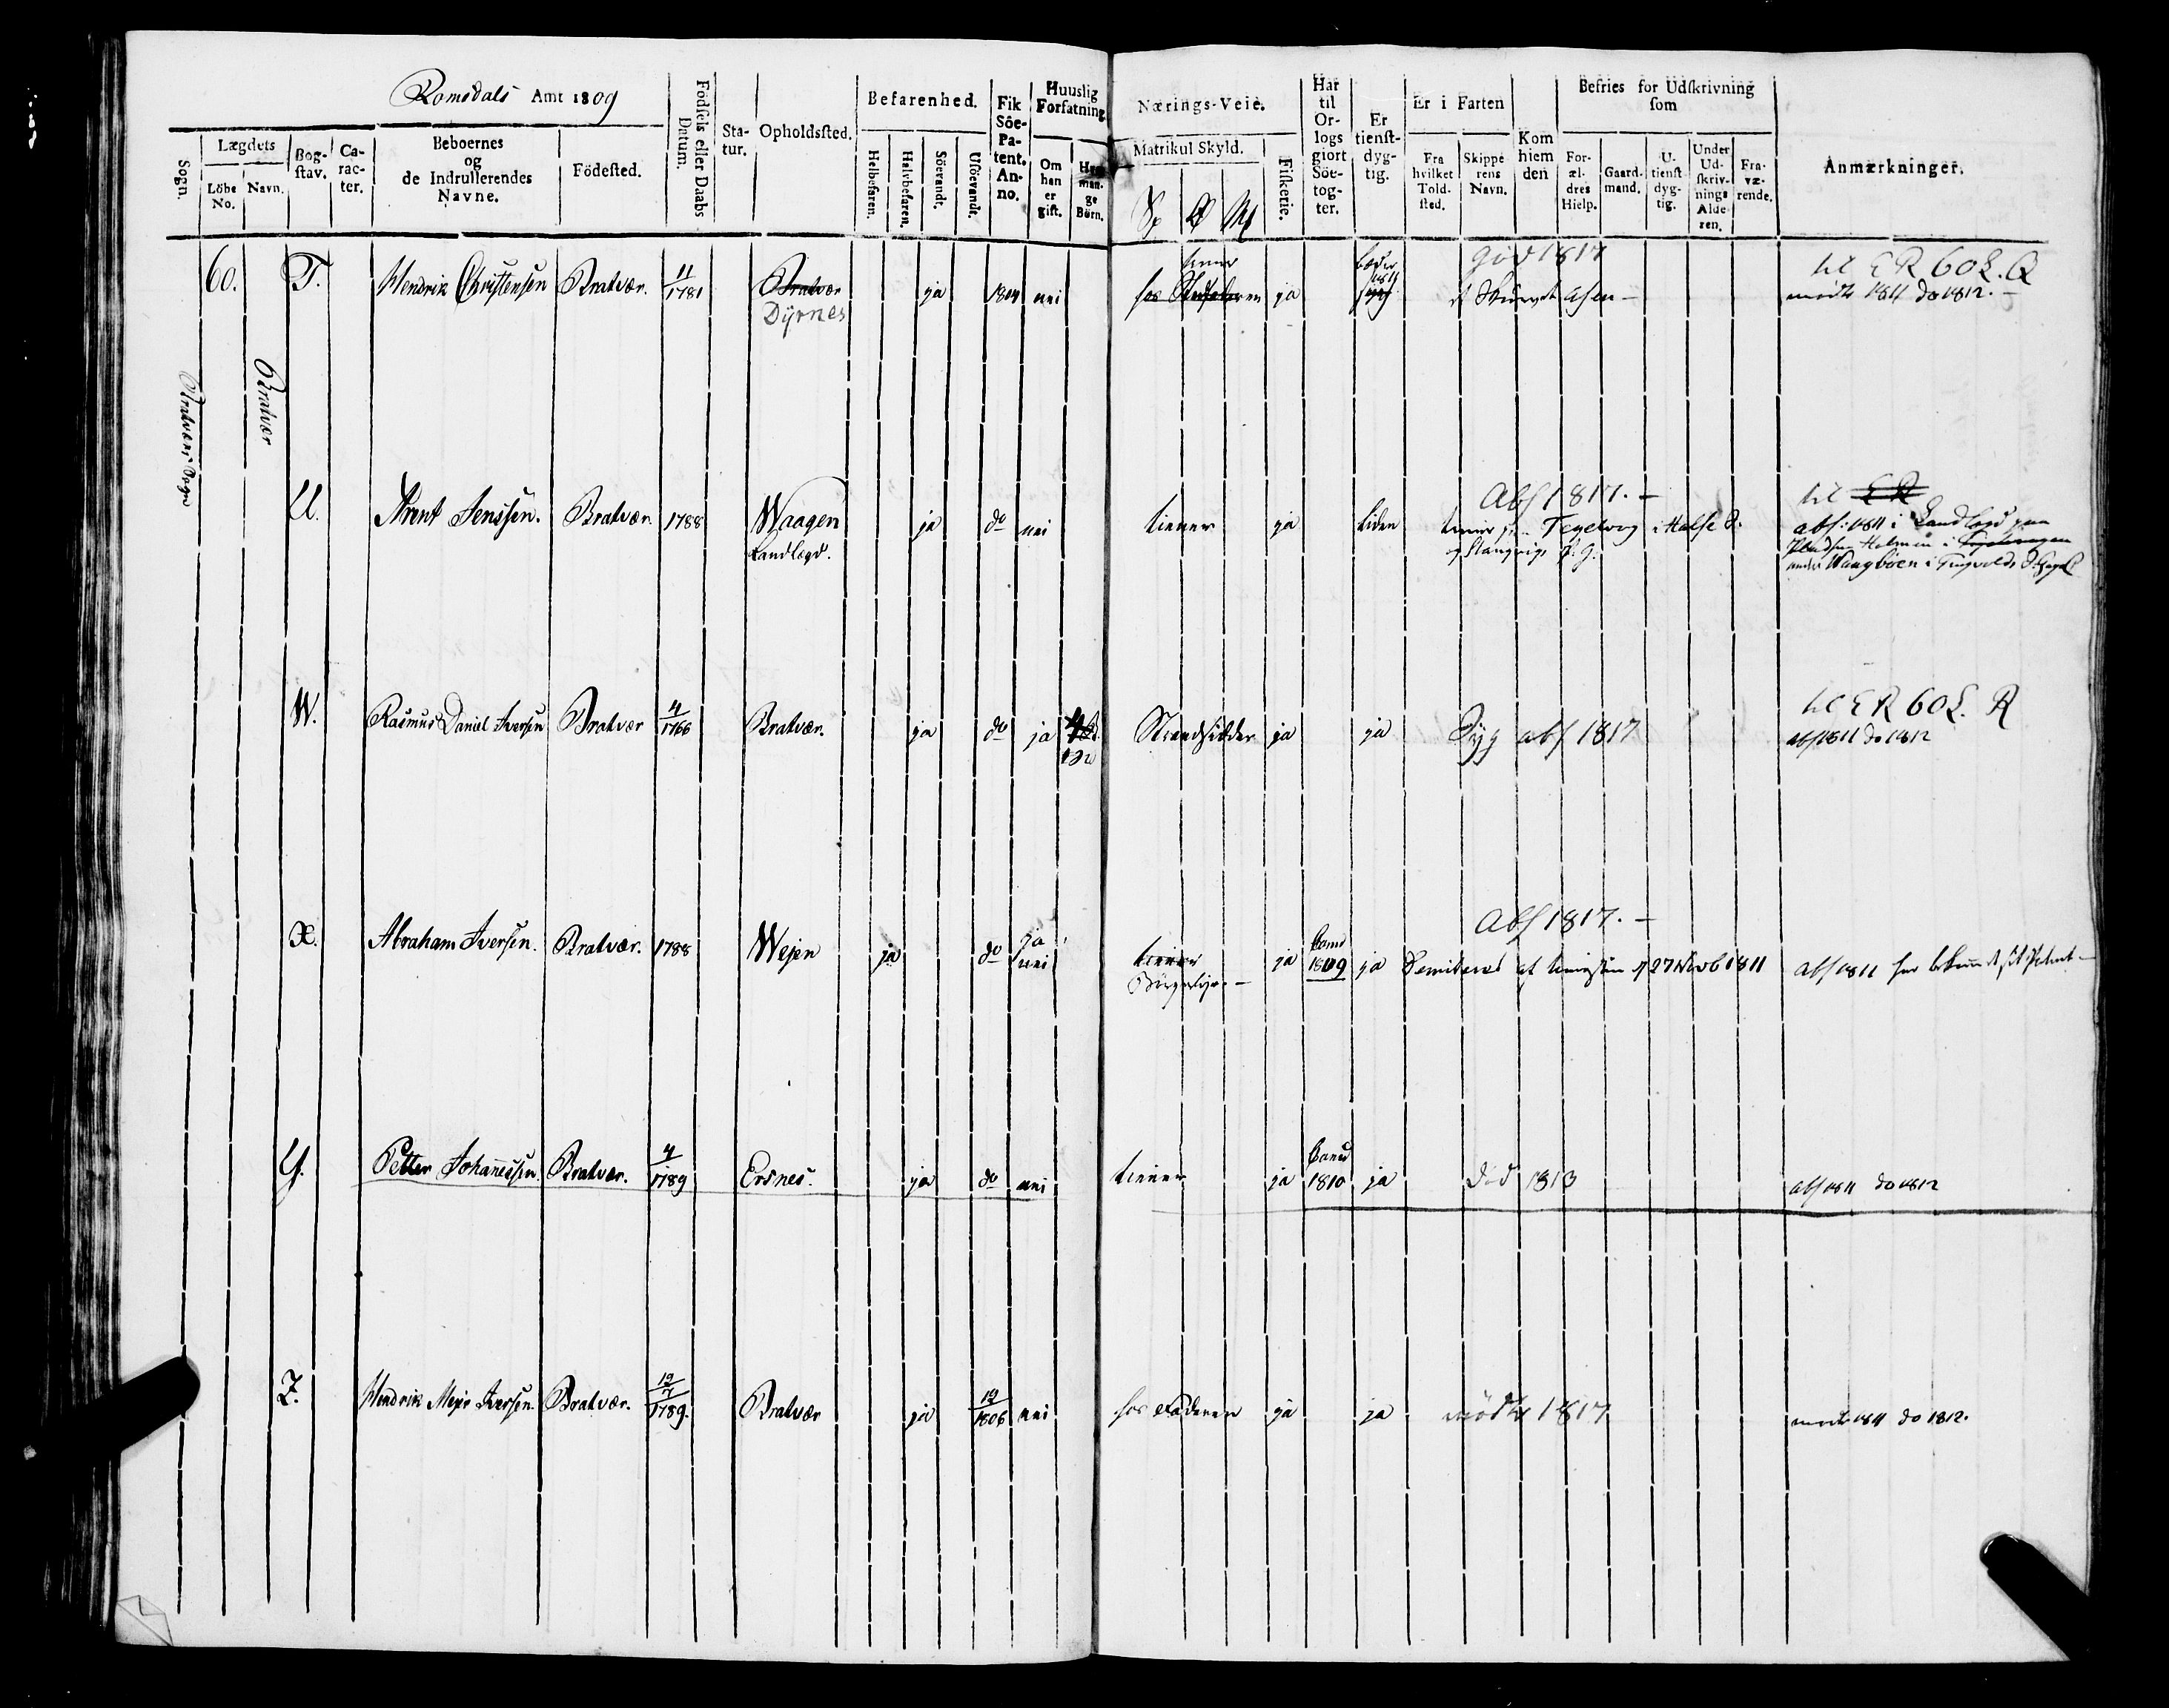 Romsdals Amt 1809
Sogn.
Lægdets
Löbe No.
Navn.
Bog-stav.
Ca-rac-ter.
Beboernes og de Indrullerendes Navne.
Födested.
Födsels eller Daabs Datum.
Sta-tur.
Opholdssted.
Befarenhed.
Helbefaren.
Halvbefaren.
Söevandt.
Usöevandt.
Fik Söe-Pa-tent. An-no.
Huuslig Forfatning
Om han er gift.
Hvor man-ge Börn.
Nærings-Veie.
Matrikul Skyld.
Fiskerie.
Har til Or-logs giort Söe-tog-ter.
Er tienst-dyg-tig.
Er i Farten
Fra hvilket Told-sted.
Skippe rens Navn.
Kom hiem den
Befries for Udskrivning som
For-æl-dres Hielp.
Gaard-mand.
U-tienst dyg-tig.
Under Ud-skriv-nings Alde-ren.
Fra-væ-rende.
Anmærkninger.
Bratvær Sogn
Bratvær
60. T. Hendrik Christensen Bratvær. 11/1781 Bratvær ja 1804 nei ja
Dÿrnes
god 1817
til ER 60 L. Q
mødte 1811 do 1812.
U. Arent Jenssen. Bratvær 1788 Waagen ja do nei tiener ja liden
Landlægd.
Abs 1817. -
til ER
abs: 1811 i Landlægd paa
Pladsen Holmen i
under Waagböen i Tingvolds
W. Rasmus Daniel Iversen Bratvær 4/1766 Bratvær. ja do ja Strandsidder ja ja Syg abs 1817
til ER 60 L. R
abs 1811 do 1812
X. Abraham Iversen. Bratvær. 1788 Wejen ja do ja nei tiener ja 1809 ja
Abs 1817. -
27 Novb 1811
abs 1811
Y. Petter Johanessen. Bratvær. 4/1789 Ersnes. ja do nei tiener ja 1810 ja död 1813 abs 1811 do 1812
Z. Hendrik Mejer Iversen. Bratvær. 19/7 1789. Bratvær ja 19/1806 nei hos Faderen ja ja mödte 1817 mødt 1811 do 1812.